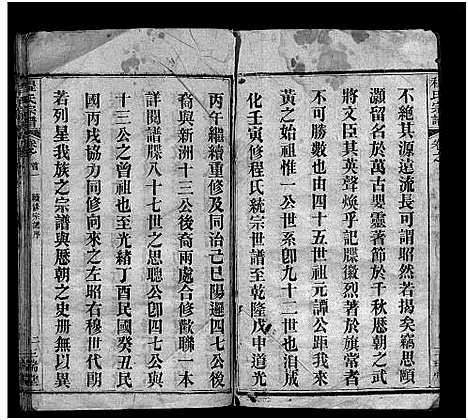 程氏宗譜
不絕其源遠流長可謂昭然若揭矣竊思頤
灝留名於萬古嬰靈著節於千秋歷朝之武
將文臣其英聲煥乎記牒徽烈著於旂常者
不可勝數也由四十五世祖元譚公距我來
黃之始祖惟一公世系卽九十二世也洎成
化壬寅修程氏統宗世譜至乾隆戊申道光
丙午繼續重修同治己巳陽邏四七公後
裔與新洲十三公後裔兩處合修歡聯一本
詳閱譜牒八十七世之思聰公卽四七公與
十三公之曾祖也至光緒丁酉民國癸丑民
國丙戌協力同修向來之左昭右穆世代朝
若列星我族之宗譜與歷朝之史册無以異
程氏宗譜
卷首
續修宗譜序